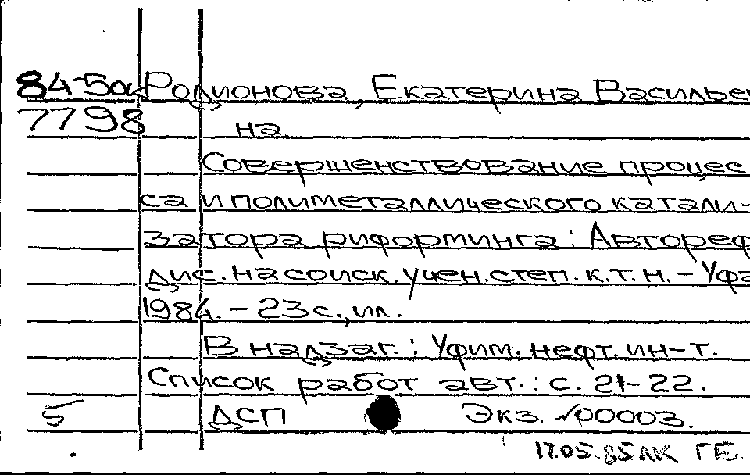 84-5а Родионова, Екатерина Василье
7798 на
Совершенствование процес
са и полиметаллического катали-
затора риформинга: Автореф
дис. на соиск. учен. степ. к.т.н. - Уфа
1984. - 23с., ил.
В надзаг.: Уфим. нефт. ин-т.
Список работ авт.: с. 21-22.
5 ДСП Экз. №00003.
17.05.85 ЛК ГЕ.